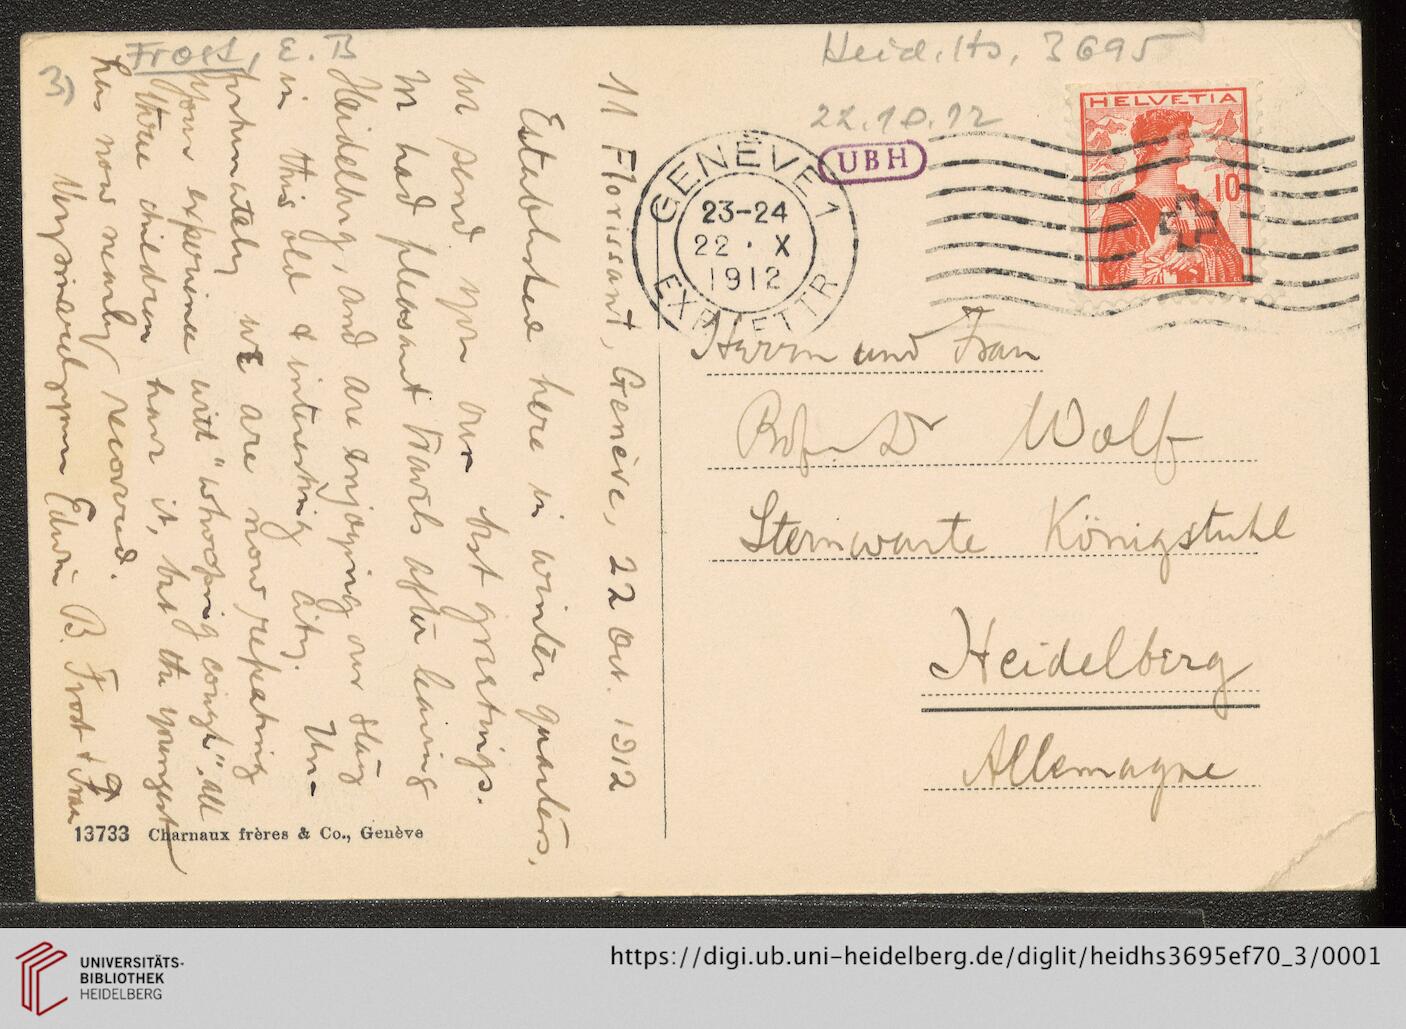 3)
Frost, E. B
Heid. Hs. 3695
22.10.12
UBH
HELVETIA
10
GENÈVE 1
23-24
22 · X
1912
EXP. LETTR
11 Florissant, Genève, 22 Oct. 1912
Established here in winter quarters,
we send you our best greetings.
We had pleasant travels after leaving
Heidelberg, and are enjoying our stay
in this old & interesting city. Un-
fortunately we are now repeating
your experience with "whooping cough", all
three children have it, but the youngest
has now nearly recovered.
Very sincerely yours Edwin B. Frost & Frau
Herrn und Frau
Prof. Dr Wolf
Sternwarte Königstuhl
Heidelberg
Allemagne
13733 Charnaux frères & Co., Genève
UNIVERSITÄTS-
BIBLIOTHEK
HEIDELBERG
https://digi.ub.uni-heidelberg.de/diglit/heidhs3695ef70_3/0001